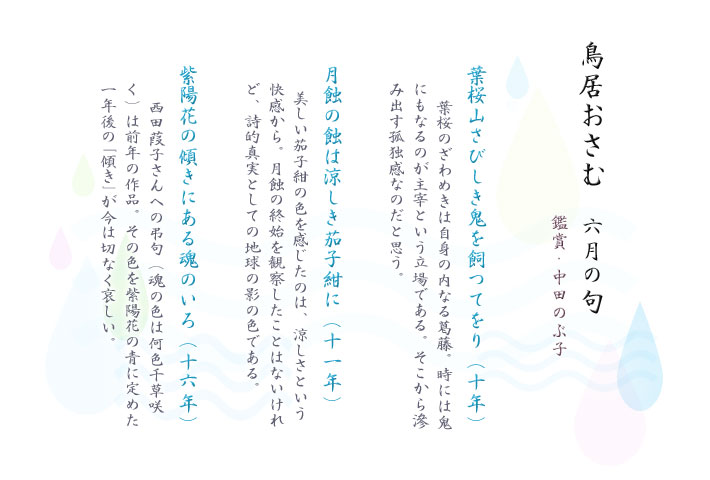 鳥居おさむ　六月の句
鑑賞・中田のぶ子
葉桜山さびしき鬼を飼つてをり（十年）
葉桜のざわめきは自身の内なる葛藤。時には鬼
にもなるのが主宰という立場である。そこから滲
み出す孤独感なのだと思う。
月蝕の蝕は涼しき茄子紺に（十一年）
美しい茄子紺の色を感じたのは、涼しさという
快感から。月蝕の終始を観察したことはないけれ
ど、詩的真実としての地球の影の色である。
紫陽花の傾きにある魂のいろ（十六年）
西田葭子さんへの弔句（魂の色は何色千草咲
く）は前年の作品。その色を紫陽花の青に定めた
一年後の「傾き」が今は切なく哀しい。